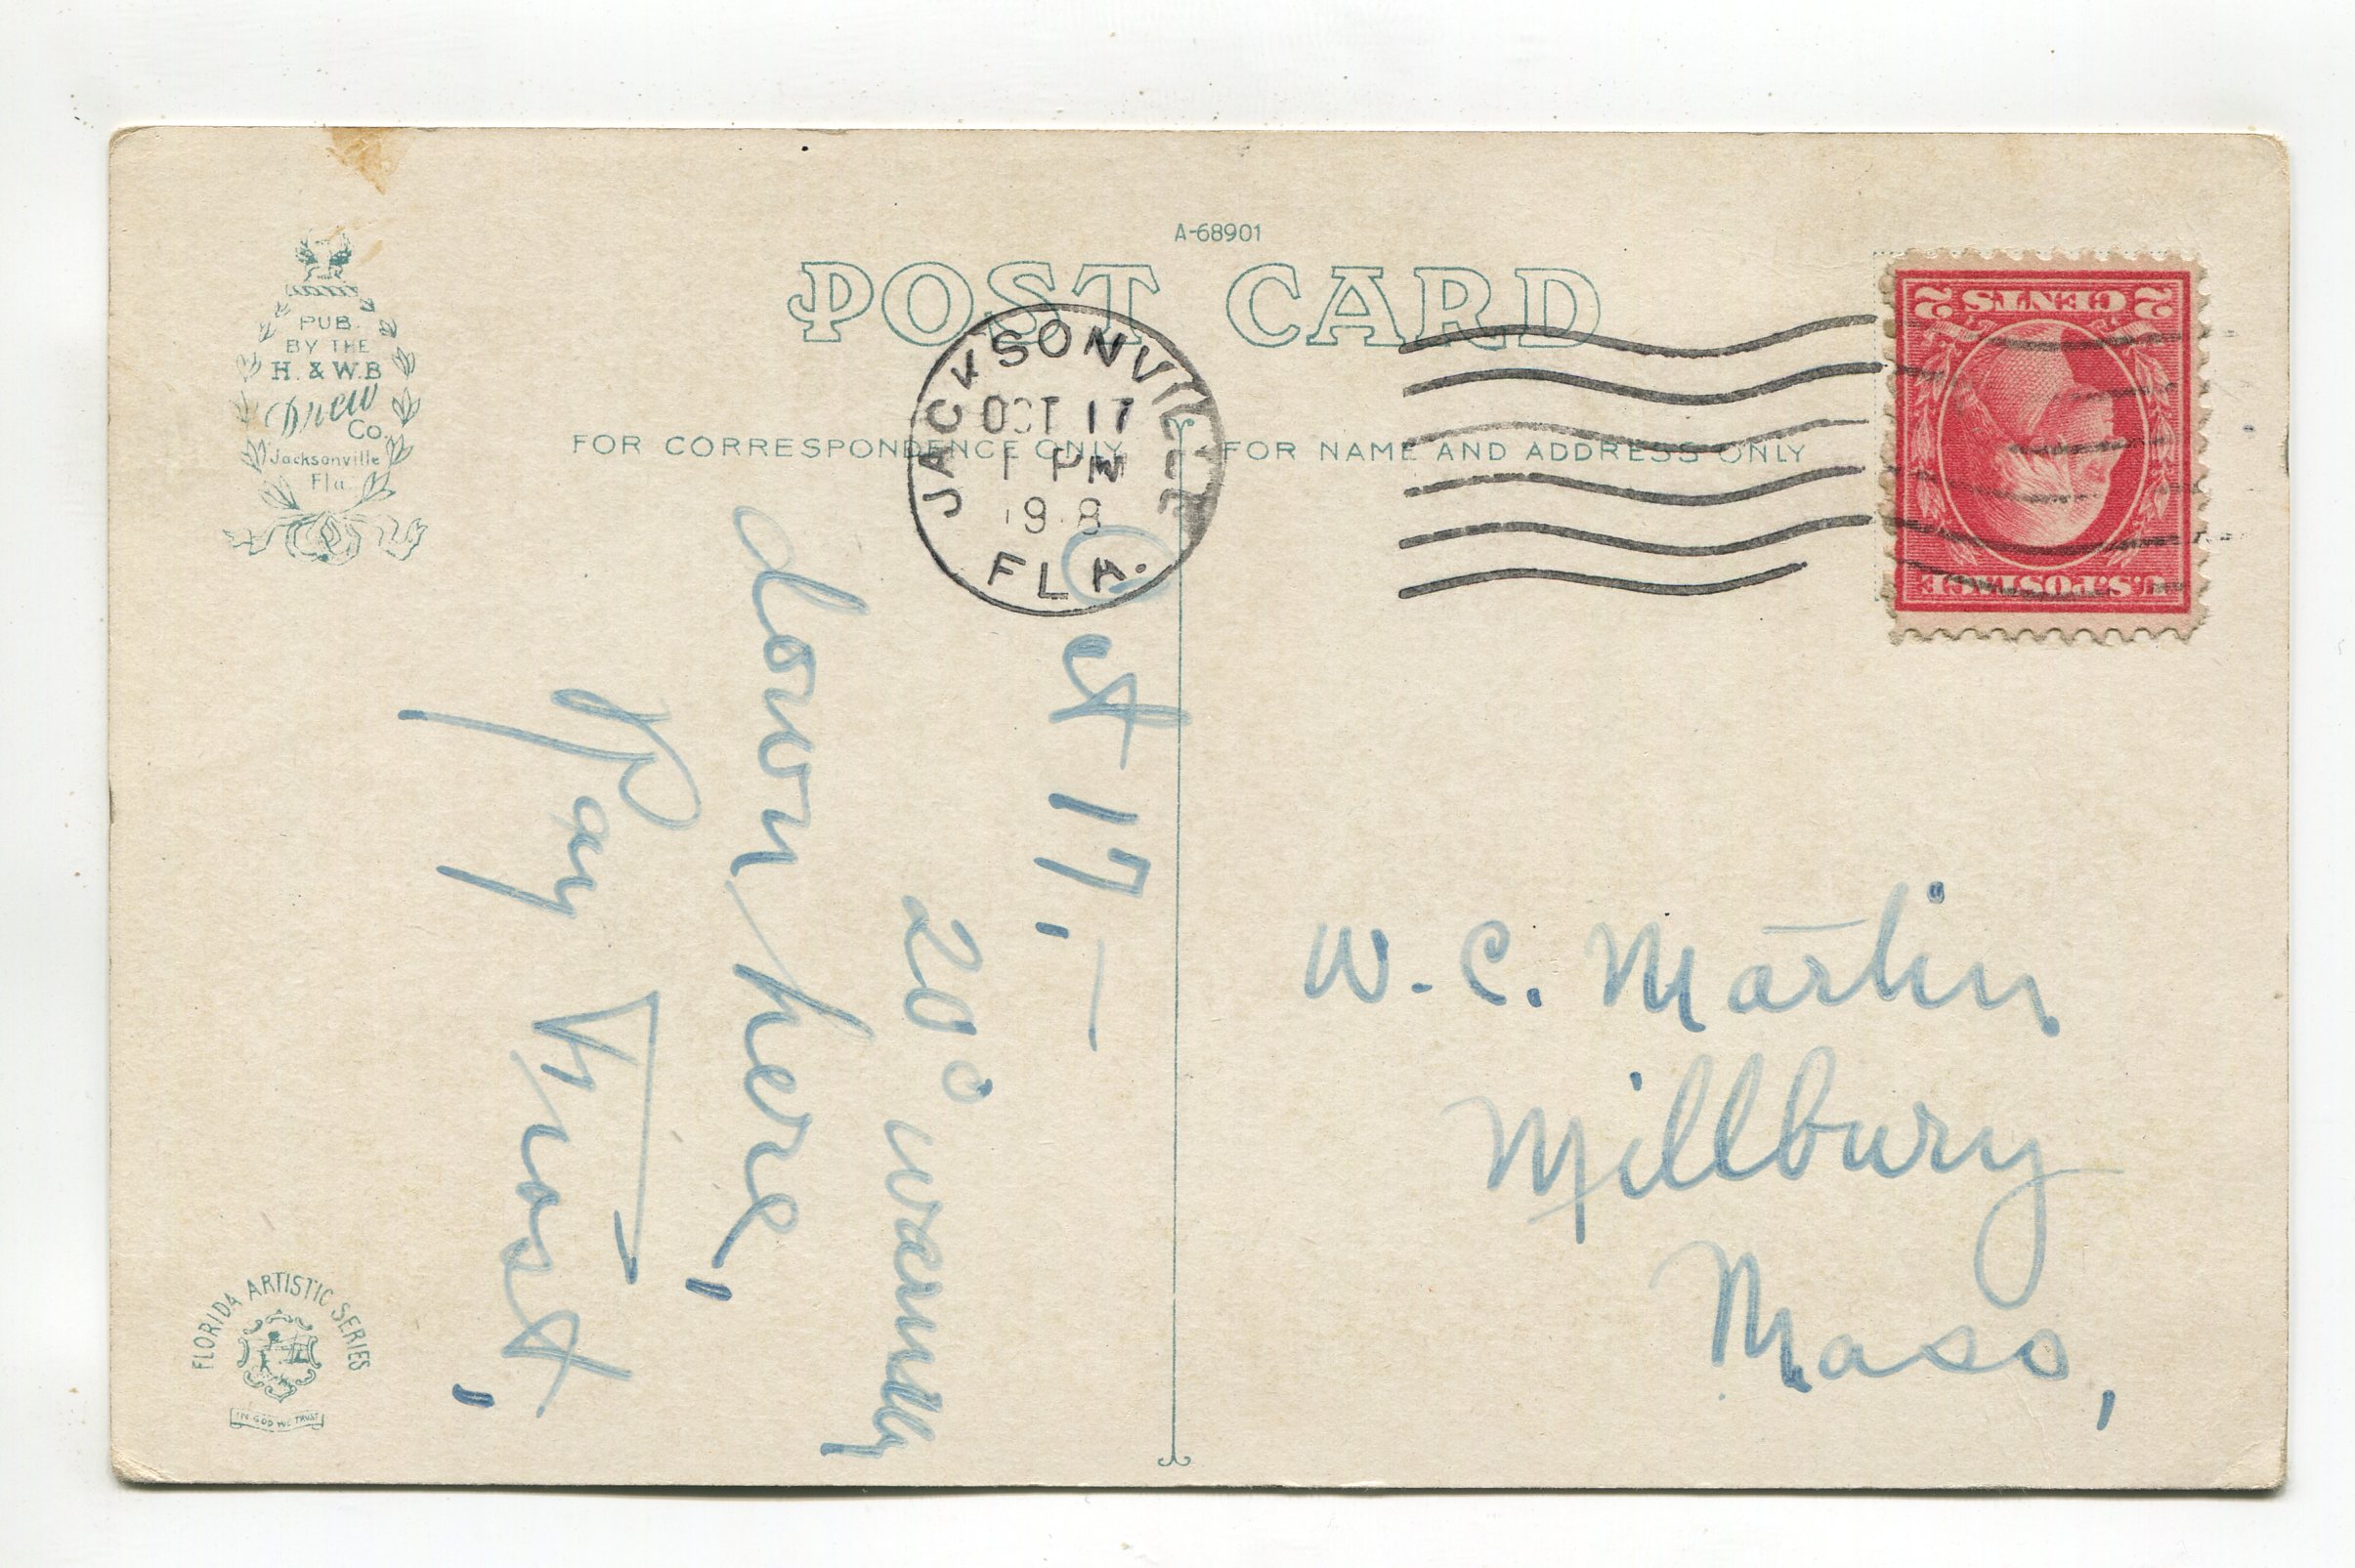 A-68901
POST CARD
PUB.
BY THE
H. & W.B
Drew
Co.
Jacksonville
Fla.
FOR CORRESPONDENCE ONLY
FOR NAME AND ADDRESS ONLY
JACKSONVILLE
OCT 17
1 PM
FLA.
2 CENTS 2
U.S. POSTAGE
Oct 17, —
20° warmer
down here,
Ray
W. C. Martin
Millbury
Mass,
FLORIDA ARTISTIC SERIES
IN GOD WE TRUST